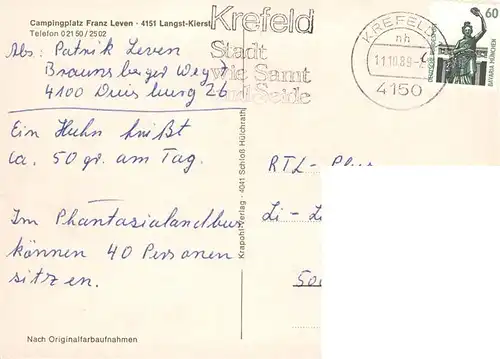 Campingplatz Franz Leven · 4151 Langst-Kierst
Telefon 02150 / 2502
Abs: Patrik Leven
Braunsberger Weg 7
4100 Duisburg 26
Ein Huhn
ca. 50 gr. am Tag.
Im Phantasialandbus
können 40 Personen
sitzen.
Nach Originalfarbaufnahmen
Krapohl-Verlag · 4041 Schloß Hülchrath
Krefeld
Stadt
wie Samt
und Seide
KREFELD
nh
11.10.89
4150
60
BAVARIA MÜNCHEN
RTL-
Li-
500